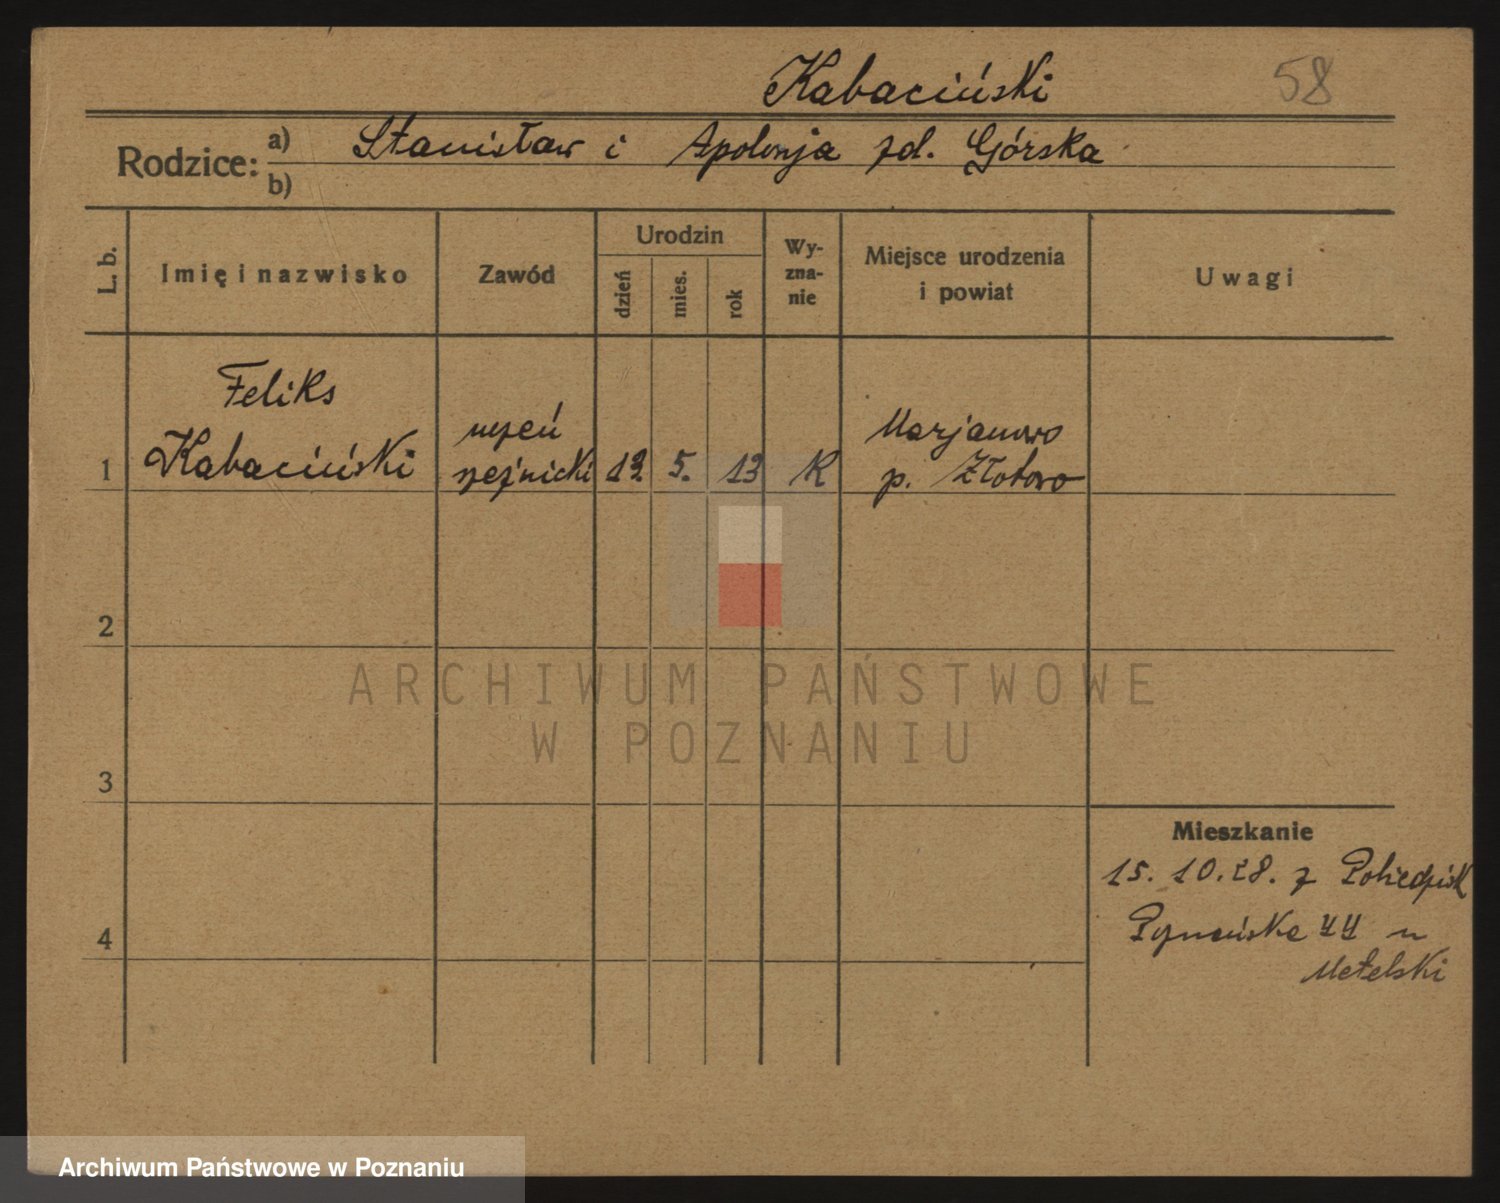 Kabaciński 58
Rodzice: a) Stanisław i Apolonja zd. Górska
b)
L. b.
Imię i nazwisko
Zawód
Urodzin
dzień
mies.
rok
Wy-
zna-
nie
Miejsce urodzenia
i powiat
Uwagi
1
Feliks
Kabaciński
uczeń
rzeźnicki
5.
13
K
Marjanowo
p. Złotowo
2
3
4
Mieszkanie
15. 10. 28. z Pobiedzisk
Poznańska 44 u
Metelski
ARCHIWUM PAŃSTWOWE
W POZNANIU
Archiwum Państwowe w Poznaniu